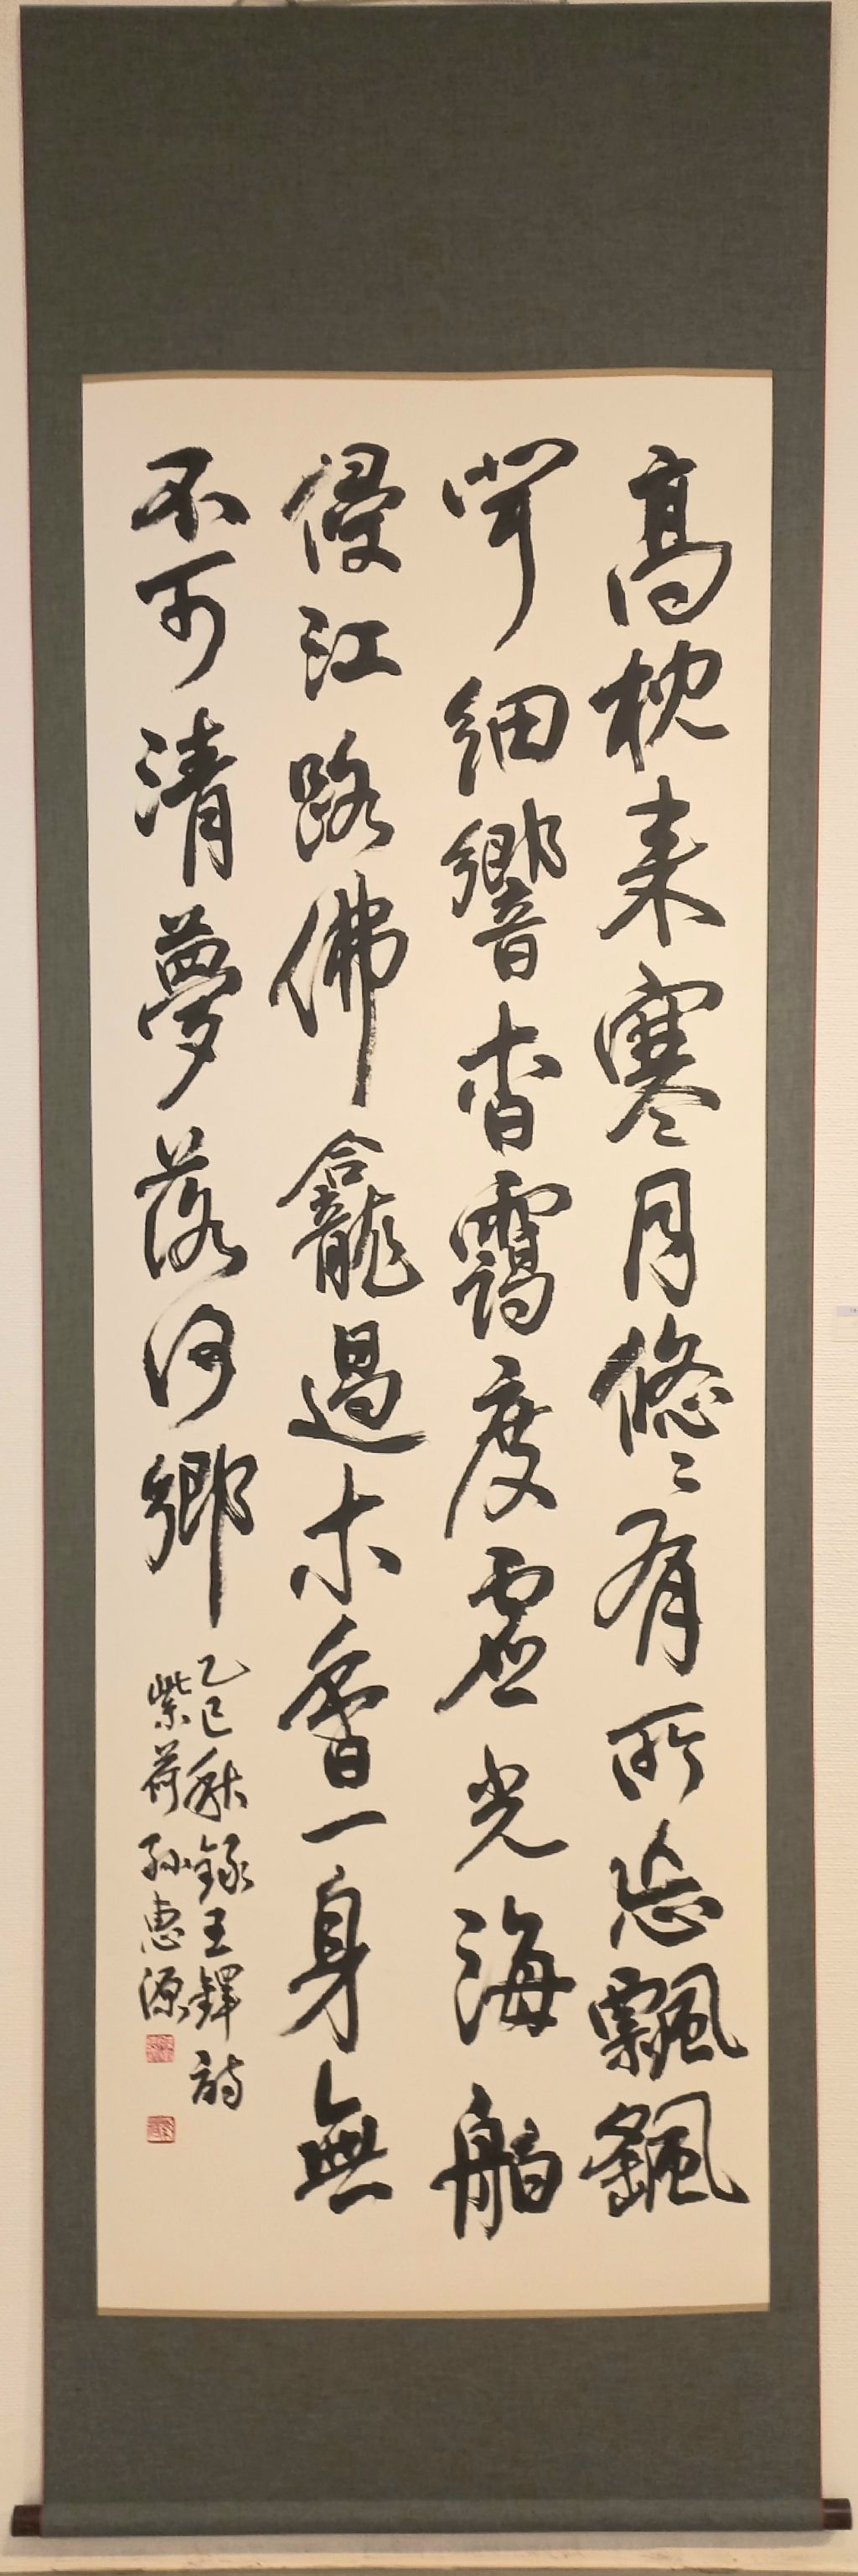 高枕来寒月悠〻有所忘飄颻
聞細響杳靄度虛光海舶
侵江路佛龕過木香一身無
不可清夢落何鄉
乙巳秋録王鐸詩
紫荷孫惠源